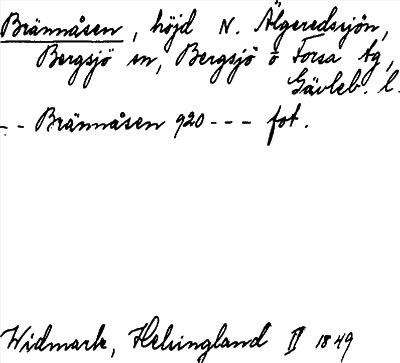 Brännåsen, höjd N. Älgeredssjön,
Bergsjö sn, Bergsjö o Forsa tg,
Gävleb. l.
- - Brännåsen 920 - - - fot.
Widmark, Helsingland II 1849